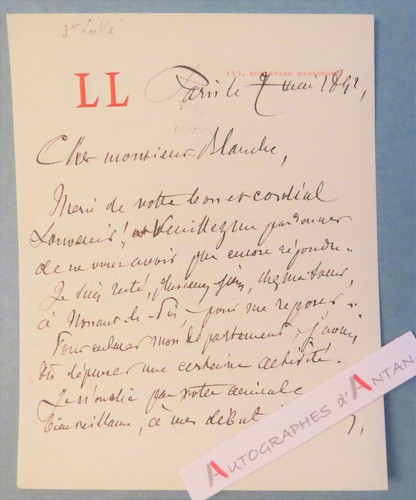 117, BOULEVARD HAUSSMANN
LL
Paris le 7 mai 1892,
Cher monsieur Blanche,
Merci de votre bon et cordial
souvenir! et Veuillez me pardonner
de ne vous avoir pas encore répondu.
Je suis resté, jours, chez ma sœur,
à Nonant-le-Pin pour me reposer.
Pour mon département, j'avais
dû déployer une certaine activité.
Je n'oublie pas votre amicale
bienveillance, à mes débuts
AUTOGRAPHES d'ANTAN